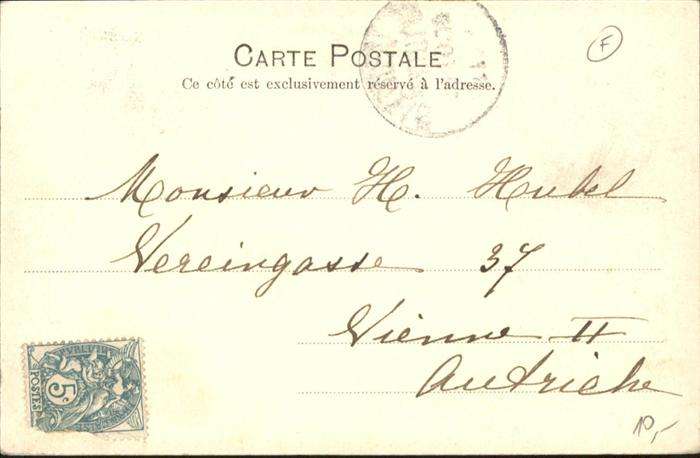 F
CARTE POSTALE
Ce côté est exclusivement réservé à l'adresse.
Monsieur H. Hubel
Vereingasse 37
Vienne II
Autriche
5c
POSTES
10,-